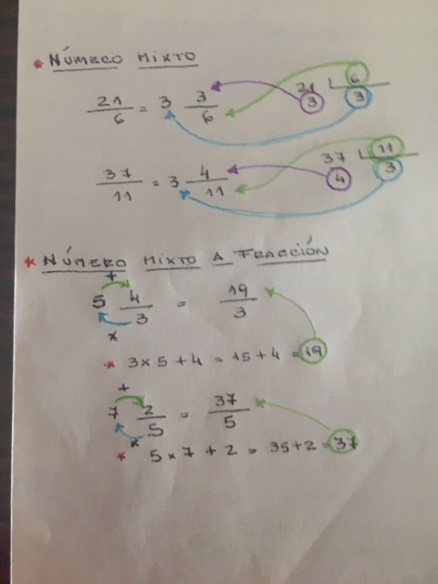 * NÚMERO MIXTO
21/6 = 3 3/6   21 | 6
3   3
37/11 = 3 4/11   37 | 11
4   3
* NÚMERO MIXTO A FRACCIÓN
+
5 4/3 = 19/3
x
* 3 x 5 + 4 = 15 + 4 = 19
+
7 2/5 = 37/5
x
* 5 x 7 + 2 = 35 + 2 = 37